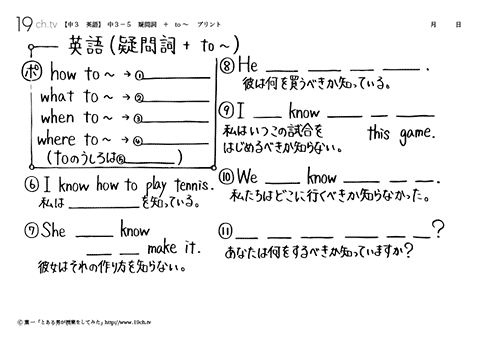 19ch.tv 【中3 英語】 中3-5 疑問詞 + to〜 プリント 月 日
英語(疑問詞 + to〜)
ポ how to〜 → ①
what to〜 → ②
when to〜 → ③
where to〜 → ④
(toのうしろは⑤ )
⑥ I know how to play tennis.
私は を知っている。
⑦ She know
make it.
彼女はそれの作り方を知らない。
⑧ He .
彼は何を買うべきか知っている。
⑨ I know
私はいつこの試合を this game.
はじめるべきか知らない。
⑩ We know .
私たちはどこに行くべきか知らなかった。
⑪ ?
あなたは何をするべきか知っていますか?
© 葉一「とある男が授業をしてみた」http://www.19ch.tv